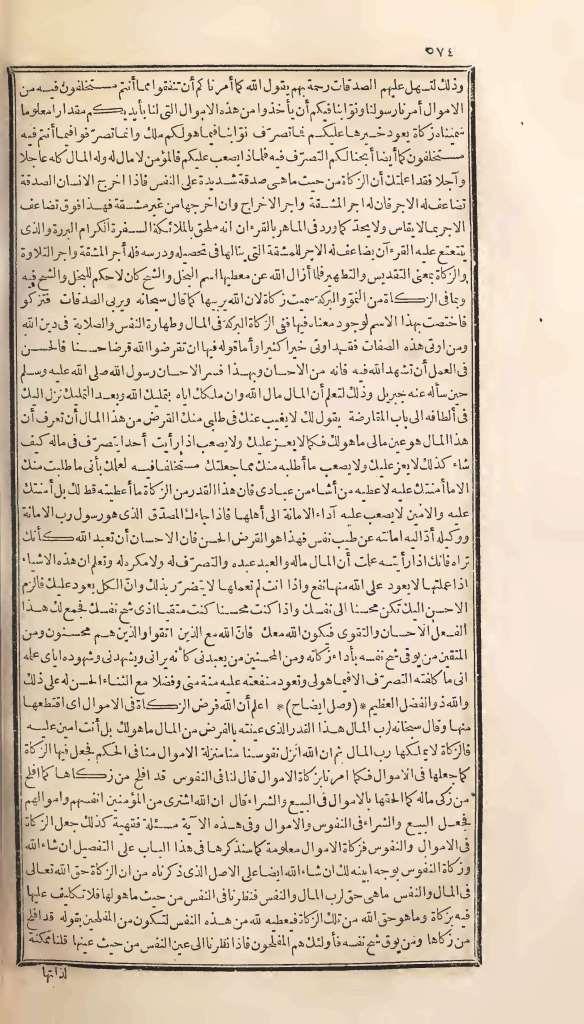 ٥٧٤
وذلك لتسهل عليهم الصدقات رحمة بهم يقول الله كما أمرناكم أن تنفقوا مما أنتم مستخلفون فيه من
الاموال أمرنا رسولنا ونوّابنا فيكم أن يأخذوا من هذه الاموال التى لنا بأيديكم مقدارا معلوما
سميناه زكاة يعود خيرها عليكم فما تصرّف نوّابنا فيما هو لكم ملك وانما تصرّفوا فيما أنتم فيه
مستخلفون كما أيضا أبحنا لكم التصرّف فيه فلماذا يصعب عليكم فالمؤمن لا مال له وله المال كله عاجلا
وآجلا فقد أعلمتك أن الزكاة من حيث ما هى صدقة شديدة على النفس فاذا اخرج الانسان الصدقة
تضاعف له الاجر فان له اجر المشقة واجر الاخراج وان اخرجها من غير مشقة فهذا فوق تضاعف
الاجر بما لا يقاس ولا يحدّ كما ورد فى الماهر بالقرءان انه ملحق بالملائكة السفرة الكرام البررة والذى
يتتعتع عليه القرءان يضاعف له الاجر للمشقة التى ينالها فى تحصيله ودرسه فله أجر المشقة واجر التلاوة
والزكاة بمعنى التقديس والتطهير فلما أزال الله عن معطيها اسم البخل والشح كان لا حكم للبخل والشح فيه
وبما فى الزكاة من النموّ والبركة سميت زكاة لان الله يربيها كما قال سبحانه ويربى الصدقات فتزكو
فاختصت بهذا الاسم لوجود معناه فيها ففى الزكاة البركة فى المال وطهارة النفس والصلابة فى دين الله
ومن اوتى هذه الصفات فقد اوتى خيرا كثيرا وأما قوله فيها ان تقرضوا الله قرضا حسنا فالحسن
فى العمل أن تشهد الله فيه فانه من الاحسان وبهذا فسر الاحسان رسول الله صلى الله عليه وسلم
حين سأله عنه جبريل وذلك لتعلم أن المال مال الله وان ملكك اياه بتمليك الله وبعد التمليك نزل اليك
فى ألطافه الى باب المقارضة يقول لك لا يغيب عنك فى طلبى منك القرض من هذا المال أن تعرف أن
هذا المال هو عين مالى ما هو لك فكما لا يعز عليك ولا يصعب اذا رأيت أحدا يتصرّف فى ماله كيف
شاء كذلك لا يعز عليك ولا يصعب ما أطلبه منك مما جعلتك مستخلفا فيه لعلمك بأنى ما طلبت منك
الا ما أمنتك عليه لاعطيه من أشاء من عبادى فان هذا القدر من الزكاة ما أعطيته قط لك بل أمنتك
عليه والامين لا يصعب عليه آداء الامانة الى أهلها فاذا جاءك المصدّق الذى هو رسول رب الامانة
ووكيله أدّ اليه امانته عن طيب نفس فهذا هو القرض الحسن فان الاحسان أن تعبد الله كأنك
تراه فانك اذا رأيته علمت أن المال ماله والعبد عبده والتصرّف له ولا مكره له وتعلم ان هذه الاشياء
اذا عملتها لا يعود على الله منها نفع واذا انت لم تعملها لا يتضرّر بذلك وانّ الكل يعود عليك فالزم
الاحسن اليك تكن محسنا الى نفسك واذا كنت محسنا كنت متقيا اذى شح نفسك فجمع لك هذا
الفعل الاحسان والتقوى فيكون الله معك فانّ الله مع الذين اتقوا والذين هم محسنون ومن
المتقين من يوقى شح نفسه بأداء زكاته ومن المحسنين من يعبدنى كأنه يرانى ويشهدنى وشهوده اياى علمه
انى ما كلفته التصرّف الا فيما هو لى وتعود منفعته عليه منة منى وفضلا مع الثناء الحسن له على ذلك
والله ذو الفضل العظيم * (وصل ايضاح) * اعلم أن الله فرض الزكاة فى الاموال اى اقتطعها
منها وقال سبحانه لرب المال هذا القدر الذى عينته بالفرض من المال ما هو لك بل أنت امين عليه
فالزكاة لا يملكها رب المال ثم ان الله انزل نفوسنا منا منزلة الاموال منا فى الحكم فجعل فيها الزكاة
كما جعلها فى الاموال فكما امرنا بزكاة الاموال قال لنا فى النفوس قد افلح من زكاها كما افلح
من زكى ماله كما الحقها بالاموال فى البيع والشراء فقال ان الله اشترى من المؤمنين انفسهم واموالهم
فجعل البيع والشراء فى النفوس والاموال وفى هذه الآية مسئلة فقهية كذلك جعل الزكاة
فى الاموال والنفوس فزكاة الاموال معلومة كما سنذكرها فى هذا الباب على التفصيل ان شاء الله
وزكاة النفوس بوجه ابينه لك ان شاء الله ايضا على الاصل الذى ذكرناه من ان الزكاة حق الله تعالى
فى المال والنفس ما هى حق لرب المال والنفس فنظرنا فى النفس من حيث ما هو لها فلا تكليف عليها
فيه بزكاة وما هو حق الله من تلك الزكاة فيعطيه لله من هذه النفس لتكون من المفلحين بقوله قد افلح
من زكاها ومن يوق شح نفسه فأولئك هم المفلحون فاذا نظرنا الى عين النفس من حيث عينها قلنا ممكنة
لذاتها